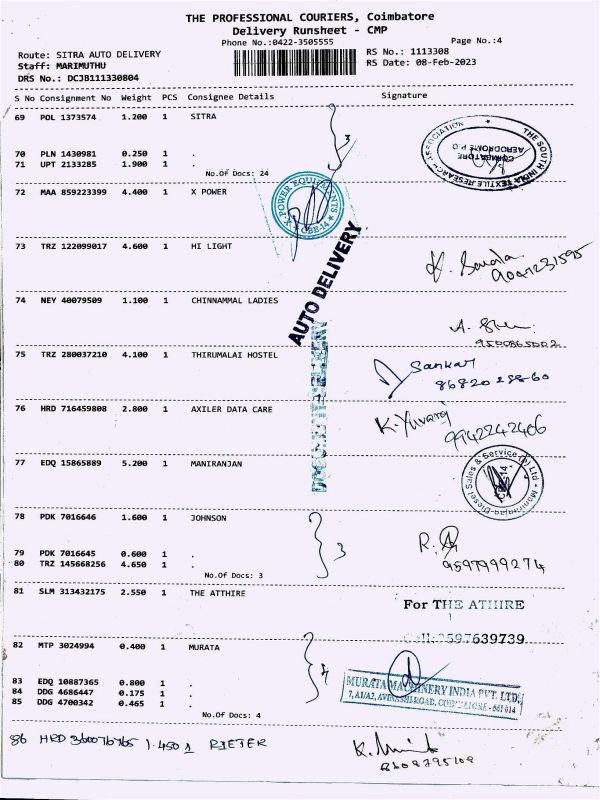 THE PROFESSIONAL COURIERS, Coimbatore
Delivery Runsheet - CMP
Phone No.:0422-3505555
Page No.:4
Route: SITRA AUTO DELIVERY
RS No.: 1113308
Staff: MARIMUTHU
RS Date: 08-Feb-2023
DRS No.: DCJB111330804
S No Consignment No Weight PCS Consignee Details Signature
69 POL 1373574 1.200 1 SITRA
3
THE SOUTH INDIA TEXTILE RESEARCH ASSOCIATION
COIMBATORE
AERODROME P.O
70 PLN 1430981 0.250 1 .
71 UPT 2133285 1.900 1 .
No.Of Docs: 24
72 MAA 859223399 4.400 1 X POWER
X POWER EQUIPMENTS
CBE-14
73 TRZ 122099017 4.600 1 HI LIGHT
AUTO DELIVERY
74 NEY 40079509 1.100 1 CHINNAMMAL LADIES
9500865002
75 TRZ 280037210 4.100 1 THIRUMALAI HOSTEL
Sankar
76 HRD 716459808 2.800 1 AXILER DATA CARE
K. Yuvaraj
9942242406
77 EDQ 15865889 5.200 1 MANIRANJAN
Maniranjan Diesel Sales & Service (P) Ltd
78 PDK 7016646 1.600 1 JOHNSON
3
R.
9597999274
79 PDK 7016645 0.600 1 .
80 TRZ 145668256 4.650 1 .
No.Of Docs: 3
81 SLM 313432175 2.550 1 THE ATTHIRE
For THE ATTHIRE
Cell:9597639739
82 MTP 3024994 0.400 1 MURATA
4
MURATA MACHINERY INDIA PVT. LTD.
7, A1/A2, AVINASHI ROAD, COIMBATORE - 641 014
83 EDQ 10887365 0.800 1 .
84 DDG 4686447 0.175 1 .
85 DDG 4700342 0.465 1 .
No.Of Docs: 4
86 HRD 360076765 1.450 1 RIETER